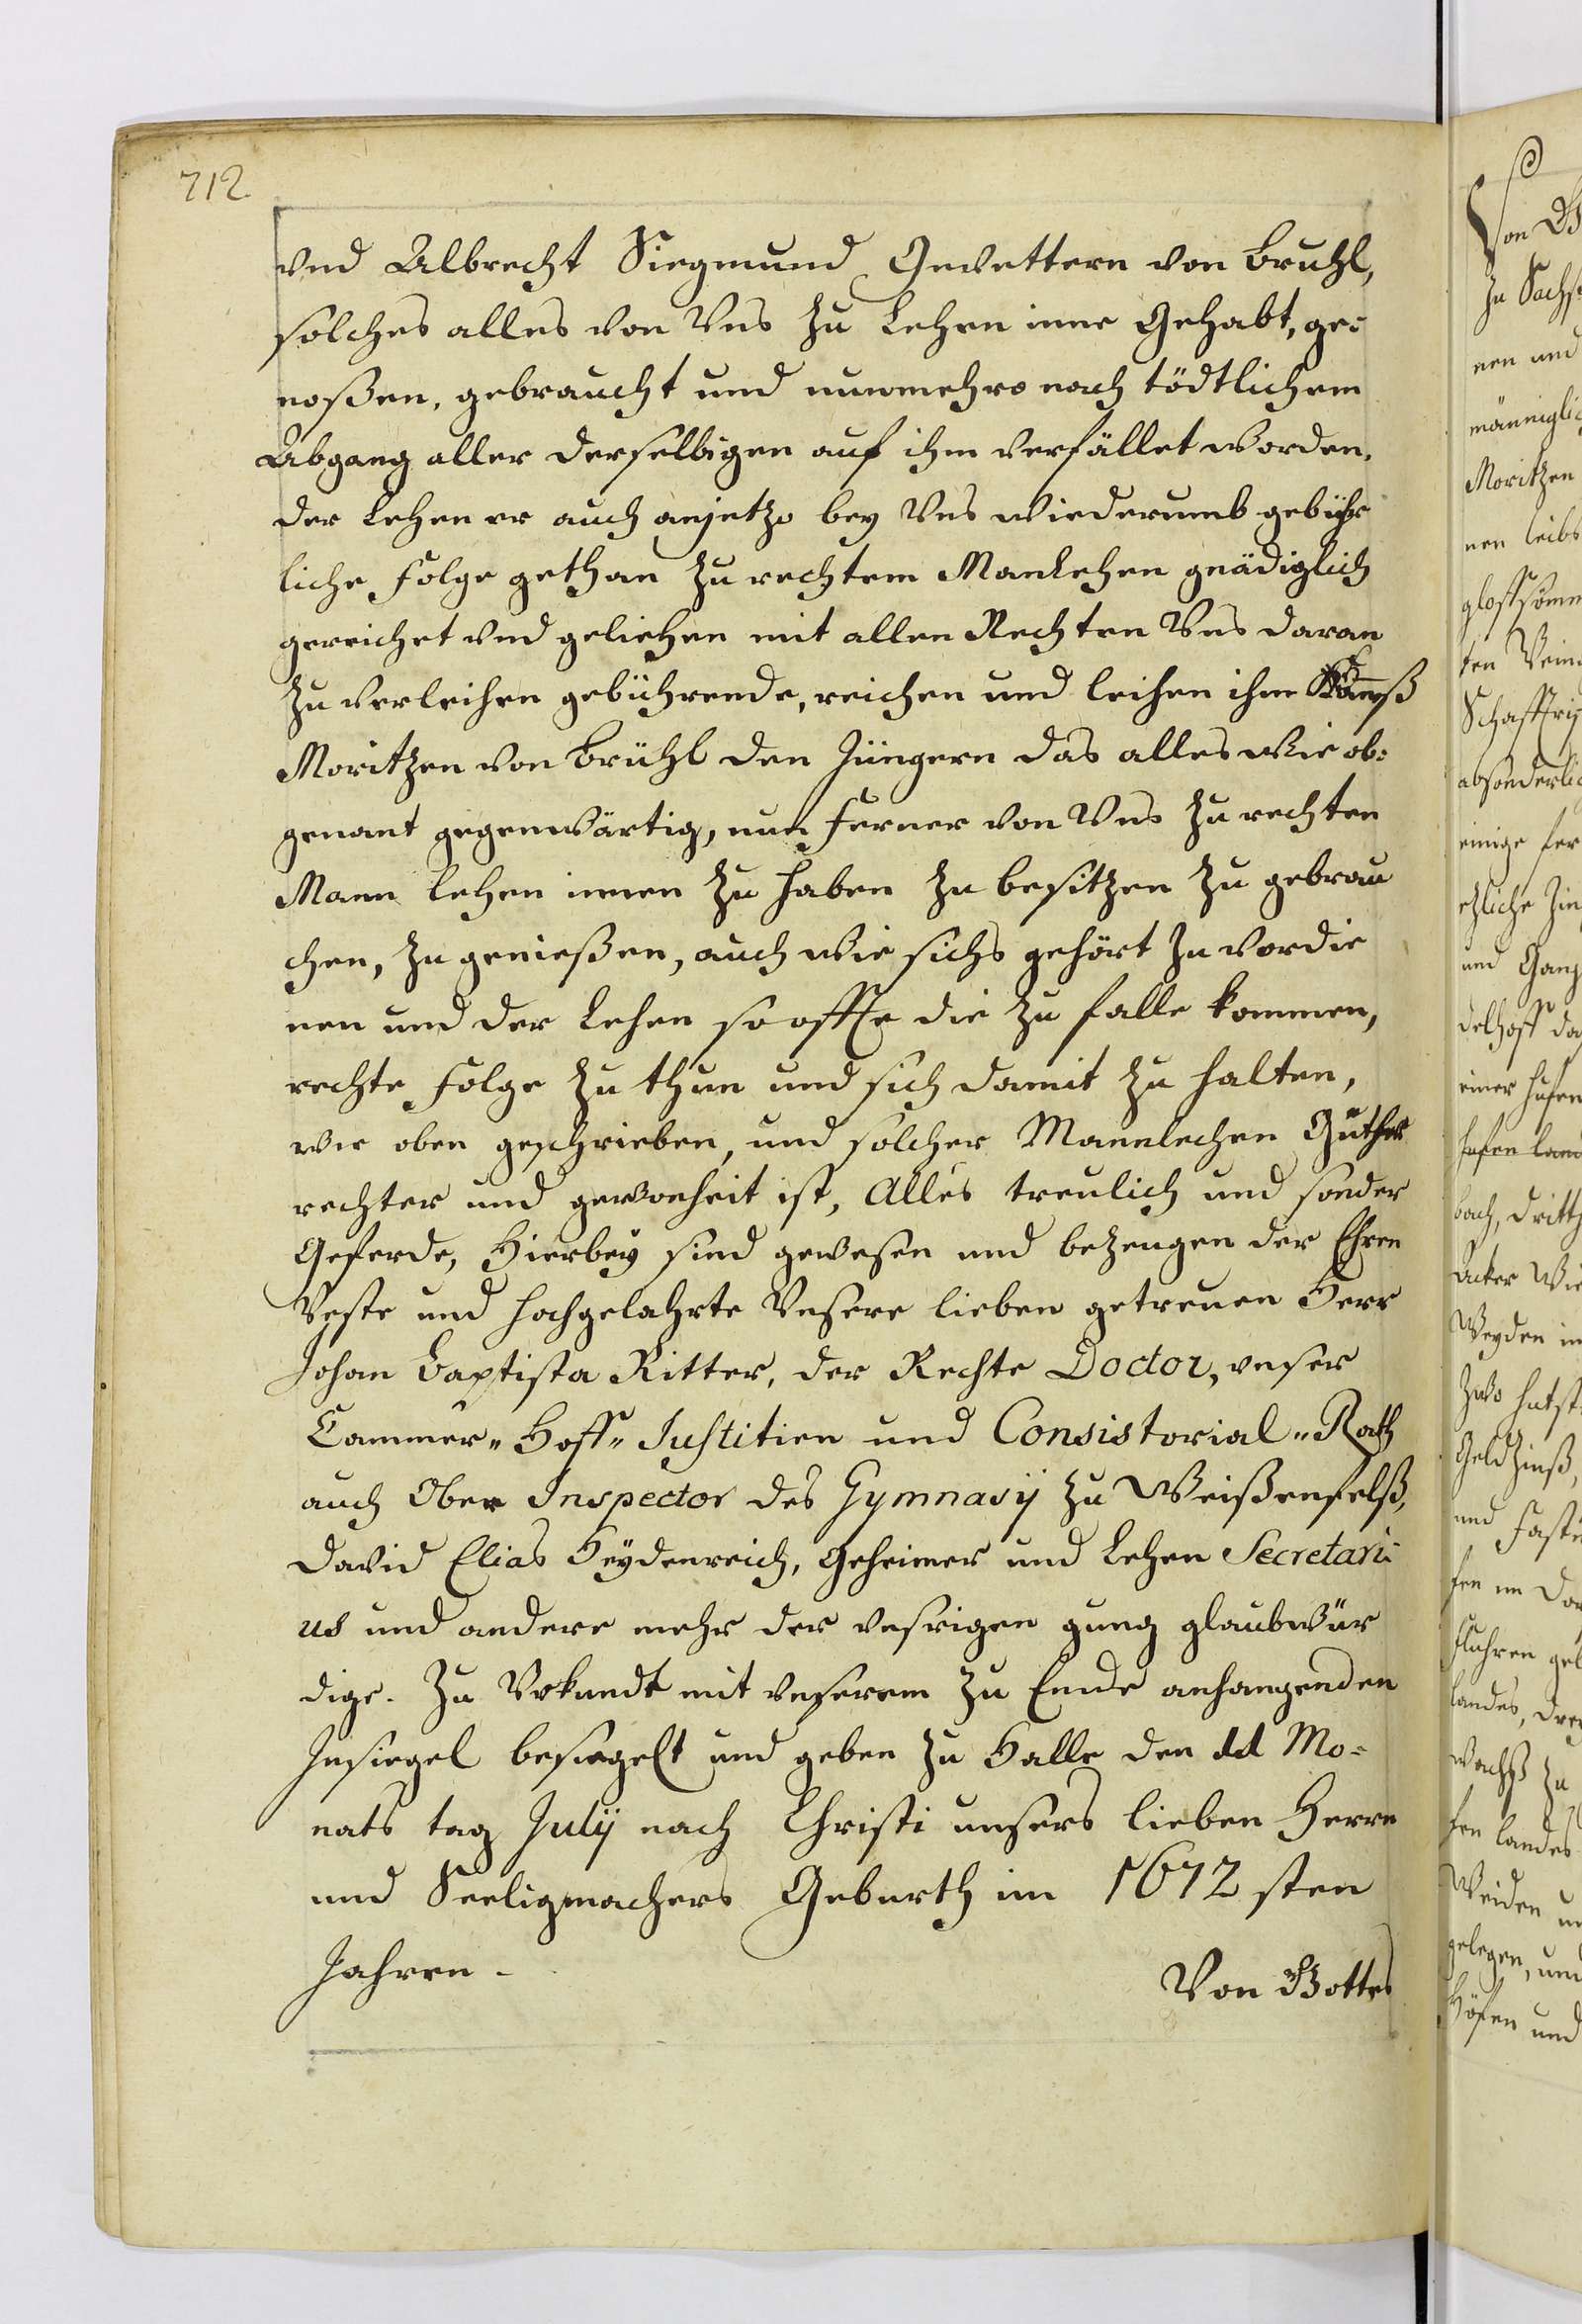 712
vnd Albrecht Siegmund Gevettern von Brühl,
solches alles von Vns zu Lehen inne Gehabt, ge-
noßen, gebraucht und nunmehro nach tödtlichem
Abgang aller derselbigen auf ihm verfället worden,
der Lehen er auch anjetzo bey Vns wiederumb gebühr
liche folge gethan zu rechtem Manlehen gnädiglich
gereichet vnd geliehen mit allen Rechten Vns daran
zu verleihen gebührende, reichen und leihen ihm
Moritzen von Brühl den Jüngern das alles wie ob-
genant gegenwärtig, nun ferner von Vns zu rechten
Mann lehen innen zu haben zu besitzen zu gebrau
chen, zu genießen, auch wie sichs gehört zu vordie
nen und der Lehen so offte die zu falle kommen,
rechte folge zu thun und sich damit zu halten,
wie oben geschrieben, und solcher Mannlechen Güther
rechter und gewonheit ist, Alles treulich und sonder
Geferde, Hierbey sind gewesen und bezeugen der Ehren
Veste und hochgelahrte Vnsere lieben getreuen Herr
Johan Baptista Ritter, der Rechte Doctor, vnser
Cammer- Hoff- Justitien und Consistorial- Rath
auch Ober Inspector des Gymnasij zu Weißenfelß,
David Elias Heydenreich, Geheimer und Lehen Secretari-
us und andere mehr der vnsrigen gung glaubwür
dige. Zu Vrkundt mit vnserem zu Ende anhangenden
Insiegel besiegelt und geben zu Halle den dd Mo-
nats tag Julij nach Christi unsers lieben Herrn
und Seeligmachers Geburth im 1672 sten
Jahren.
Von Gottes
Von
zu Sachs
nen und
männiglic
Moritzen
nen leibs
ten
Schafferij
absonderlic
einige
etzliche Zin
und Gang
delhoff da
einer hufen
hufen land
bach, dritth
Acker Wie
Weyden in
Zwo
Geld Zinß,
und
fen im Dor
fluhren gel
landes, drey
zu
fen landes
Weiden u
gelegen, und
Höfen und